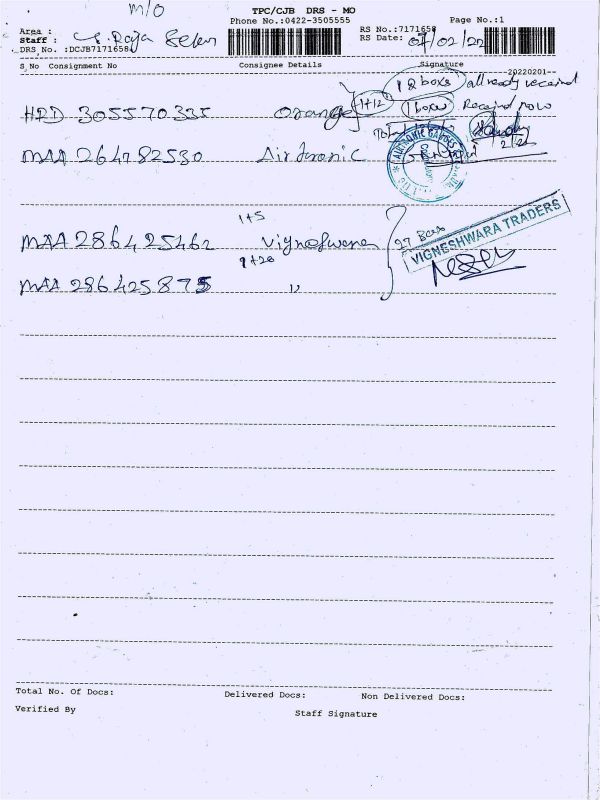 M/O
TPC/CJB DRS - MO
Phone No.:0422-3505555
Page No.:1
Area :
Staff : Raja Sekar
DRS No. :DCJB7171658
RS No.:7171658
RS Date: 02/22
S.No Consignment No Consignee Details Signature
--20220201--
18 boxs allready received
HRD 305570335 Orange 1+12 1 boxs Received now
MAA 264782530 Airtronic
1+5
MAA 286425462 Vigneshwara 27 Box VIGNESHWARA TRADERS
1+20
MAA 286425875 "
Total No. Of Docs: Delivered Docs: Non Delivered Docs:
Verified By Staff Signature